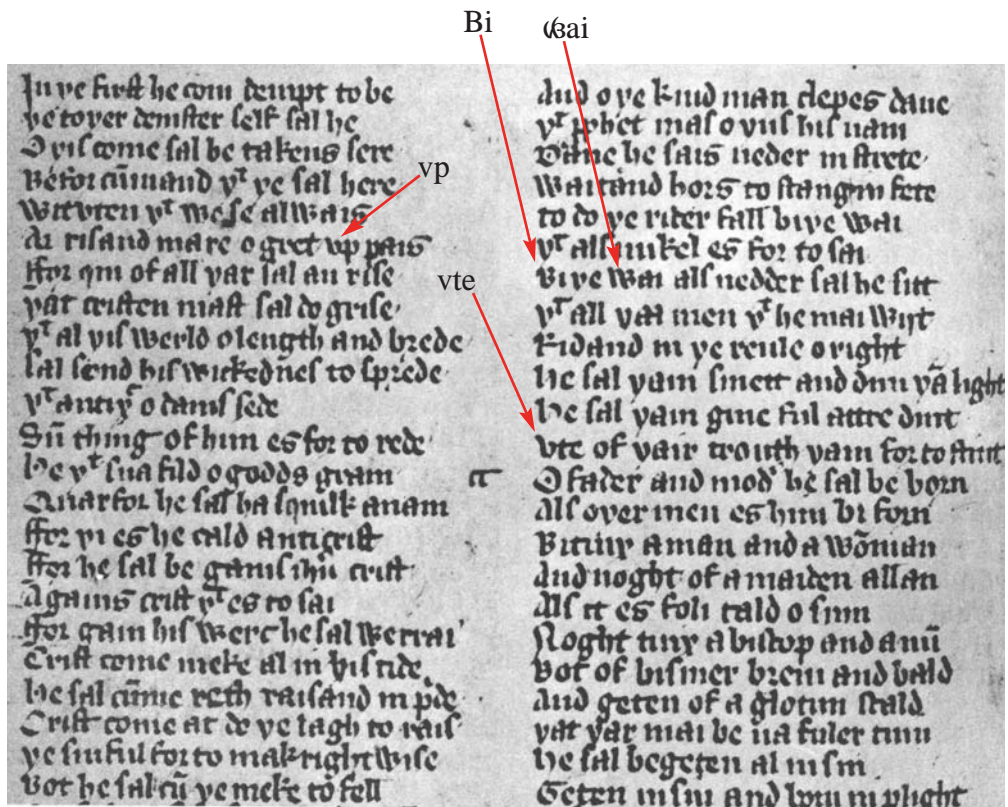 Bi
ꝩai
vp
vte
In ye first he com dempt to be
ye toyer demster self sal he
O yis come sal be takens sere
Befor cūmand yᵗ ye sal here
Witvten yᵗ we se alwais
Ai risand mare o gret vp pais
ffor qm of all yar sal an rise
yat cristen mast sal do grise
yᵗ al yis werld o length and brede
sal send his wickednes to sprede
yᵗ antixᵓ o danis sede
Sū thing of him es for to rede
He yᵗ sua fild o godds gram
Quarfor he sal ha squilk a nam
ffor yi es he cald anticrist
ffor he sal be gains ihū crist
Agains crist yᵗ es to sai
ffor gain his werc he sal werrai
Crist come meke al in his tide
he sal cūme reth raisand in pᵢde
Crist come at do ye lagh to rais
ye sinful for to mak right wise
Bot he sal cū ye meke to fell
And o ye kind man clepes dane
yᵗ pphet mas o yus his nam
Dane he sais neder in strete
Waitand hors to stangin fete
to do ye rider fall bi ye wai
yᵗ als mikel es for to sai
Bi ye wai als nedder sal he sitt
yᵗ all yai men yᵗ he mai wijt
Ridand in ye reule o right
he sal yam smett and dun yā light
he sal yam giue ful attre dint
vte of yair trouth yam for to stint
O fader and mod' he sal be born
Als oyer men es him bi forn
Bituix a man and a wōman
And noght of a maiden allan
Als it es foli tald o sum
Noght tuix a biscop and a nū
Bot of bismer brem and bald
And geten of a glotun scald
yat yar mai be na fuler tun
he sal be geten al in sin
Geten in sin and born in plight